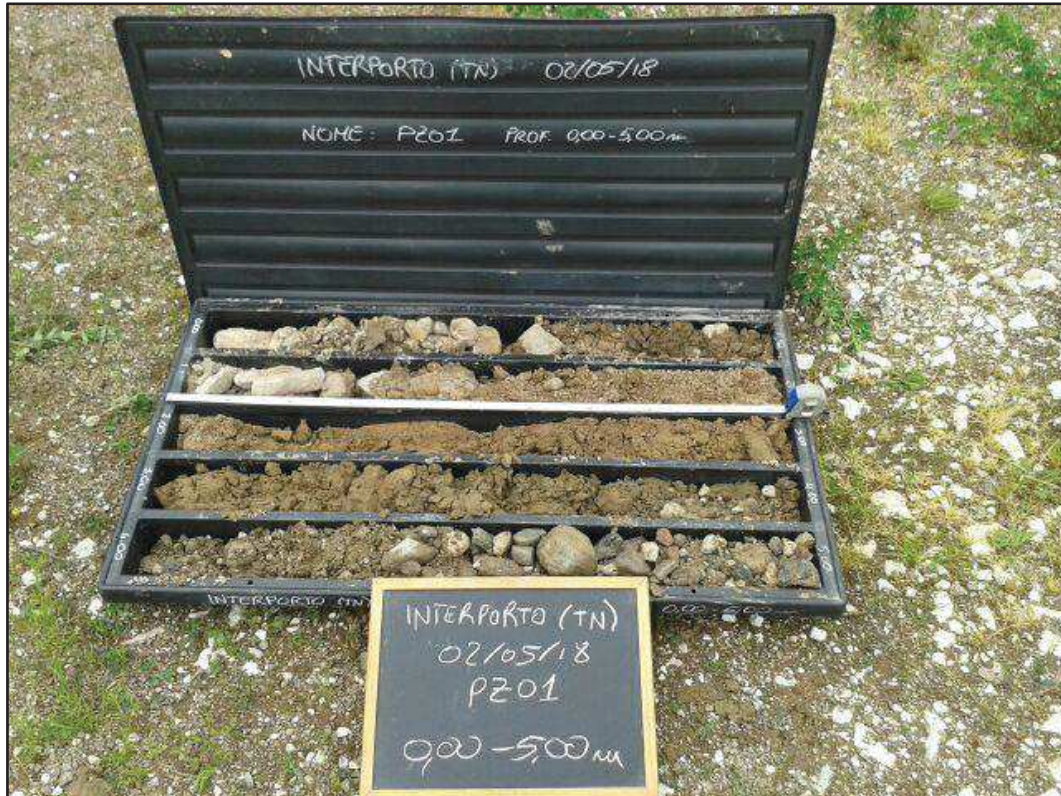 INTERPORTO (TN) 02/05/18
NOME: PZ01 PROF. 0,00-5,00 m
0,00
3,00
4,00
4,00
5,00
INTERPORTO (TN) 0,00-5,00
INTERPORTO (TN)
02/05/18
PZ01
0,00-5,00 m